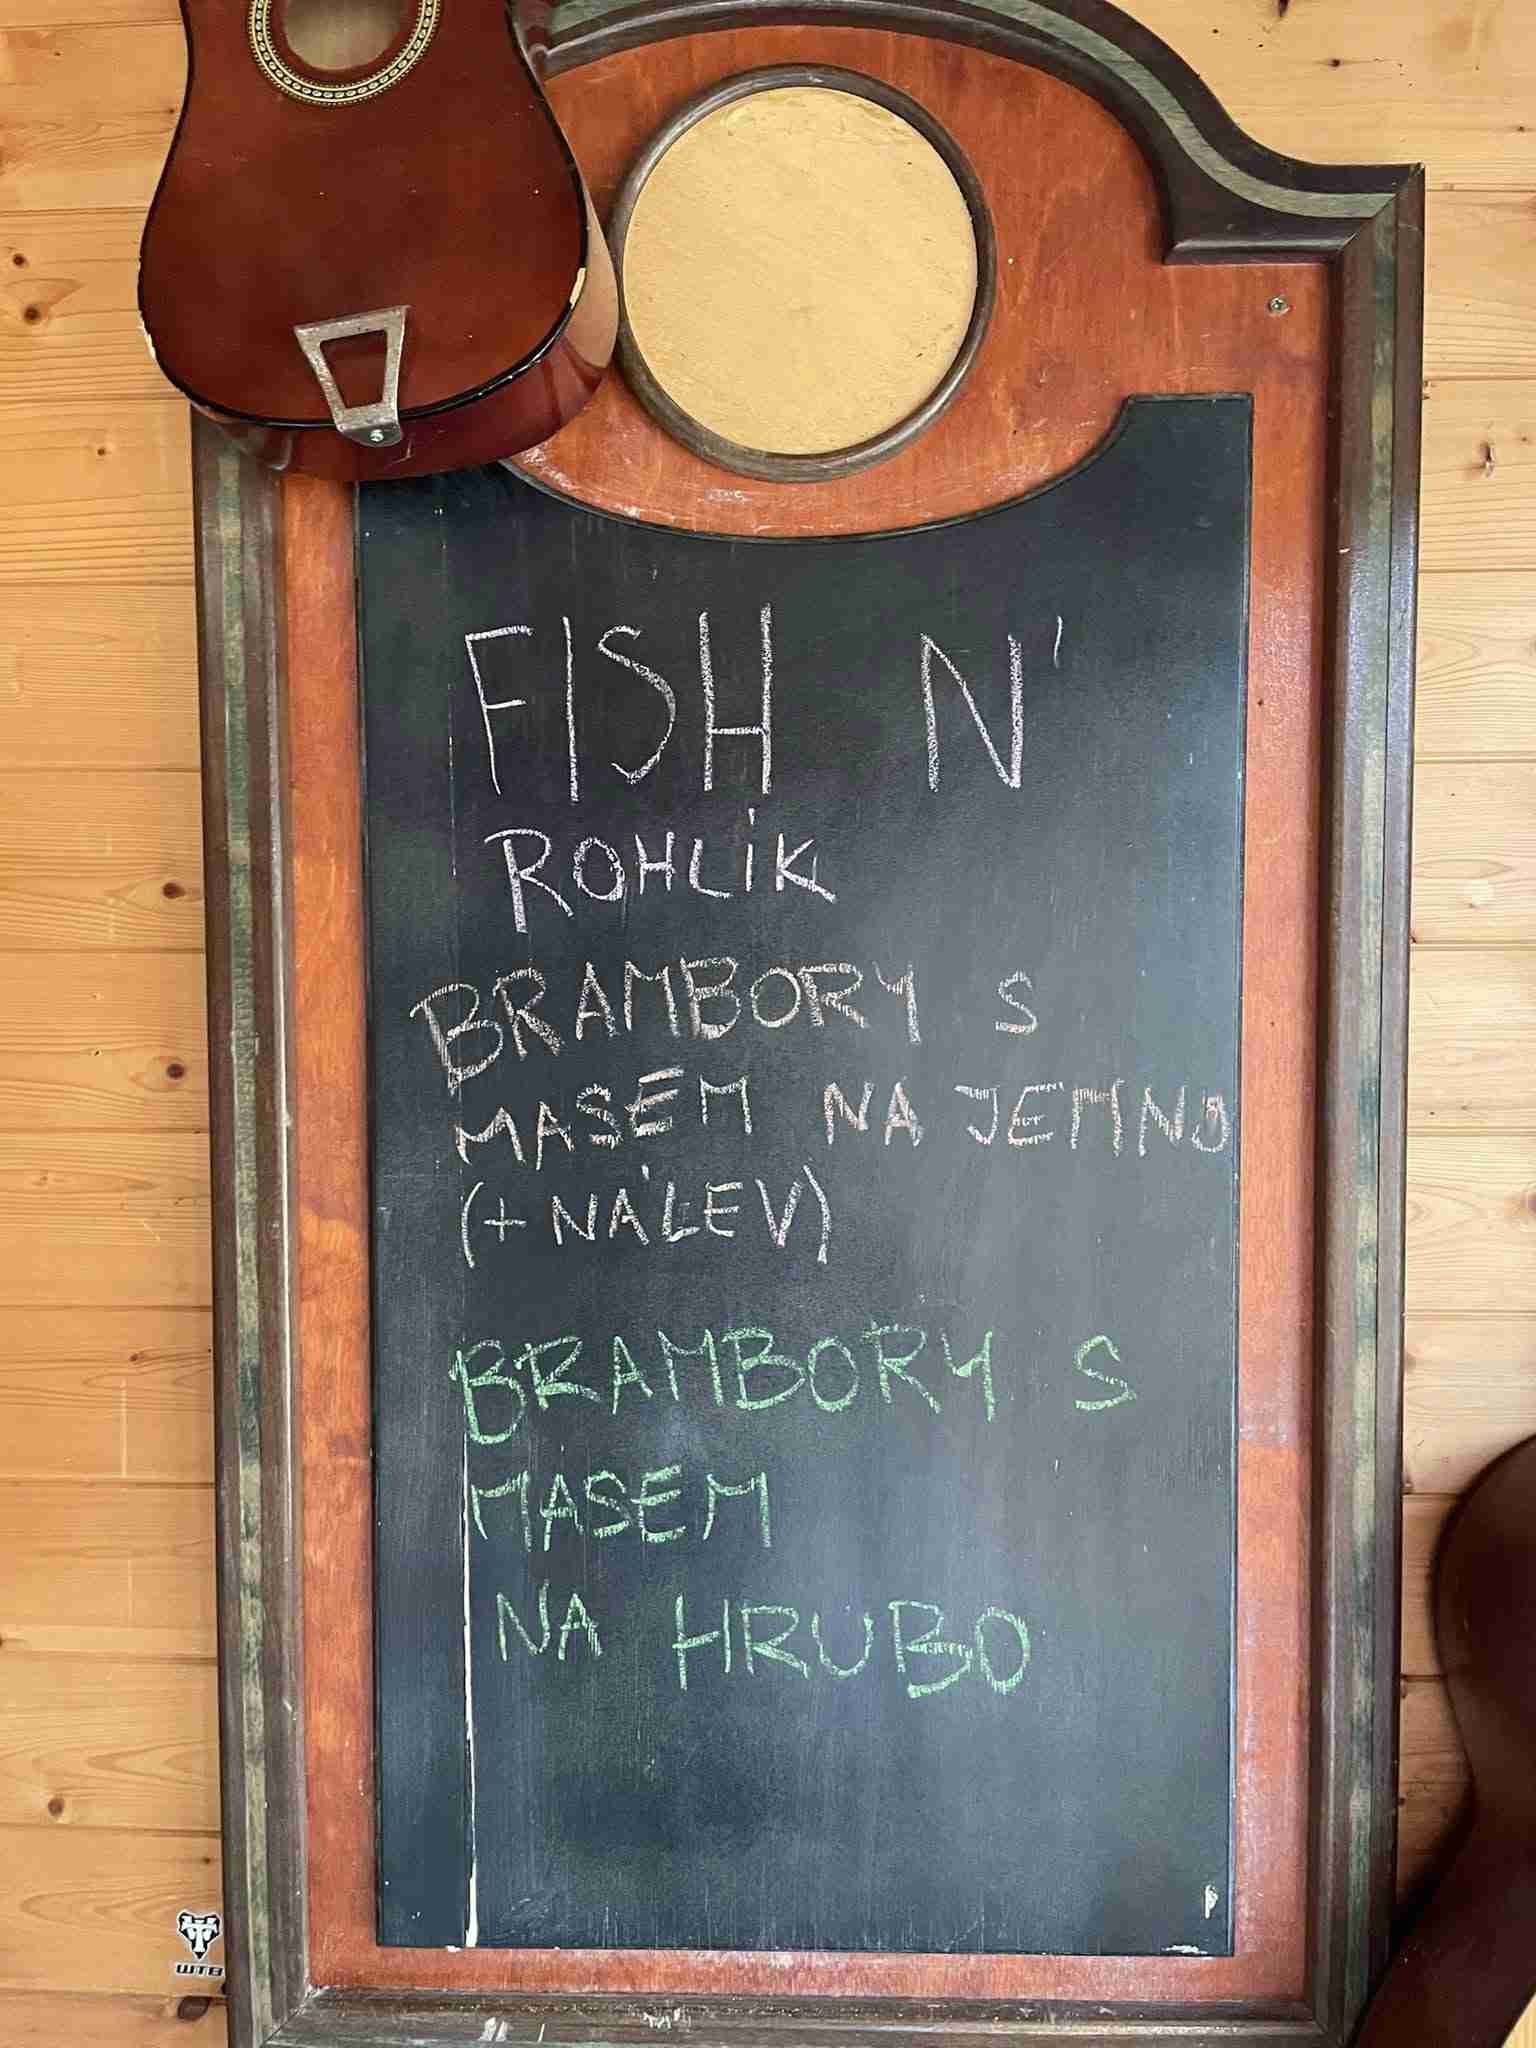 FISH N'
ROHLÍK
BRAMBORY S
MASEM NA JEMNO
(+ NÁLEV)
BRAMBORY S
MASEM
NA HRUBO
WTB